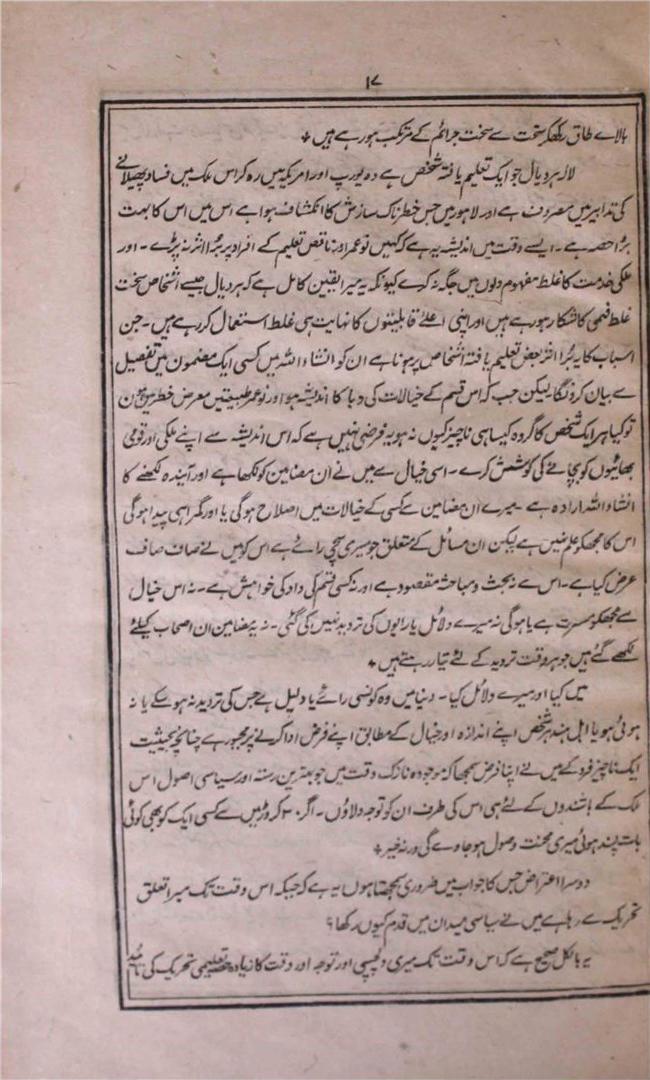 ۱۷
بالاے طاق رکھکر سخت سے سخت جرائم کے مرتکب ہورہے ہیں *
لالہ ہردیال جو ایک تعلیم یافتہ شخص ہے وہ یورپ اور امریکہ میں رہ کر اس ملک میں فساد پھیلانے
کی تدابیر میں مصروف ہے اور لاہور میں جس خطرناک سازش کا انکشاف ہوا ہے اس میں اس کا بہت
بڑا حصہ ہے۔ ایسے وقت میں اندیشہ یہ ہے کہ کہیں نوعمر اور ناقص تعلیم کے افراد پر بُرا اثر نہ پڑے۔ اور
ملکی خدمت کا غلط مفہوم دلوں میں جگہ نہ کرے کیونکہ یہ میرا یقین کامل ہے کہ ہردیال جیسے اشخاص سخت
غلط فہمی کا شکار ہورہے ہیں اور اپنی اعلےٰ قابلیتوں کا نہایت ہی غلط استعمال کررہے ہیں۔ جن
اسباب کا یہ بُرا اثر بعض تعلیم یافتہ اشخاص پر ہوتا ہے ان کو انشاء اللہ میں کسی ایک مضمون میں تفصیل
سے بیان کرونگا لیکن جب کہ اس قسم کے خیالات کی وبا کا اندیشہ ہو اور نوعمر طبیعتیں معرض خطر میں ہوں
تو کیا ہر ایک شخص کا گروہ کیسا ہی ناچیز کیوں نہ ہو یہ فرضی نہیں ہے کہ اس اندیشہ سے اپنے ملکی اور قومی
بھائیوں کو بچانے کی کوشش کرے۔ اسی خیال سے میں نے ان مضامین کو لکھا ہے اور آیندہ لکھنے کا
انشاء اللہ ارادہ ہے۔ میرے ان مضامین سے کسی کے خیالات میں اصلاح ہوگی یا اور گمراہی پیدا ہوگی
اس کا مجھکو علم نہیں ہے لیکن ان مسائل کے متعلق جو میری سچی رائے ہے اس کو میں نے صاف صاف
عرض کیا ہے۔ اس سے نہ بحث و مباحثہ مقصود ہے اور نہ کسی قسم کی داد کی خواہش ہے۔ نہ اس خیال
سے مجھکو مسرت ہے یا ہوگی نہ میرے دلائل یا رایوں کی تردید نہیں کی گئی۔ نہ یہ مضامین ان اصحاب کیلئے
لکھے گئے ہیں جو ہر وقت تردید کے لئے تیار رہتے ہیں *
میں کیا اور میرے دلائل کیا۔ دنیا میں وہ کونسی رائے یا دلیل ہے جس کی تردید نہ ہوسکے یا نہ
ہوئی ہو یا اہل ہند ہر شخص اپنے اندازہ اور خیال کے مطابق اپنے فرض ادا کرنے پر مجبور ہے چنانچہ بحیثیت
ایک ناچیز فرد کے میں نے اپنا فرض سمجھا کہ موجودہ نازک وقت میں جو بہترین رستہ اور سیاسی اصول اس
ملک کے باشندوں کے لئے ہی اس کی طرف ان کو توجہ دلاؤں۔ اگر ۳۰ کروڑ میں سے کسی ایک کو بھی کوئی
بات پسند ہوئی میری محنت وصول ہوجاوے گی ورنہ خیر *
دوسرا اعتراض جس کا جواب میں ضروری سمجھتا ہوں یہ ہے کہ جبکہ اس وقت تک میرا تعلق
تحریک سے رہا ہے میں نے سیاسی میدان میں قدم کیوں رکھا؟
یہ بالکل صحیح ہے کہ اس وقت تک میری دلچسپی اور توجہ اور وقت کا زیادہ حصہ تعلیمی تحریک کی تائید